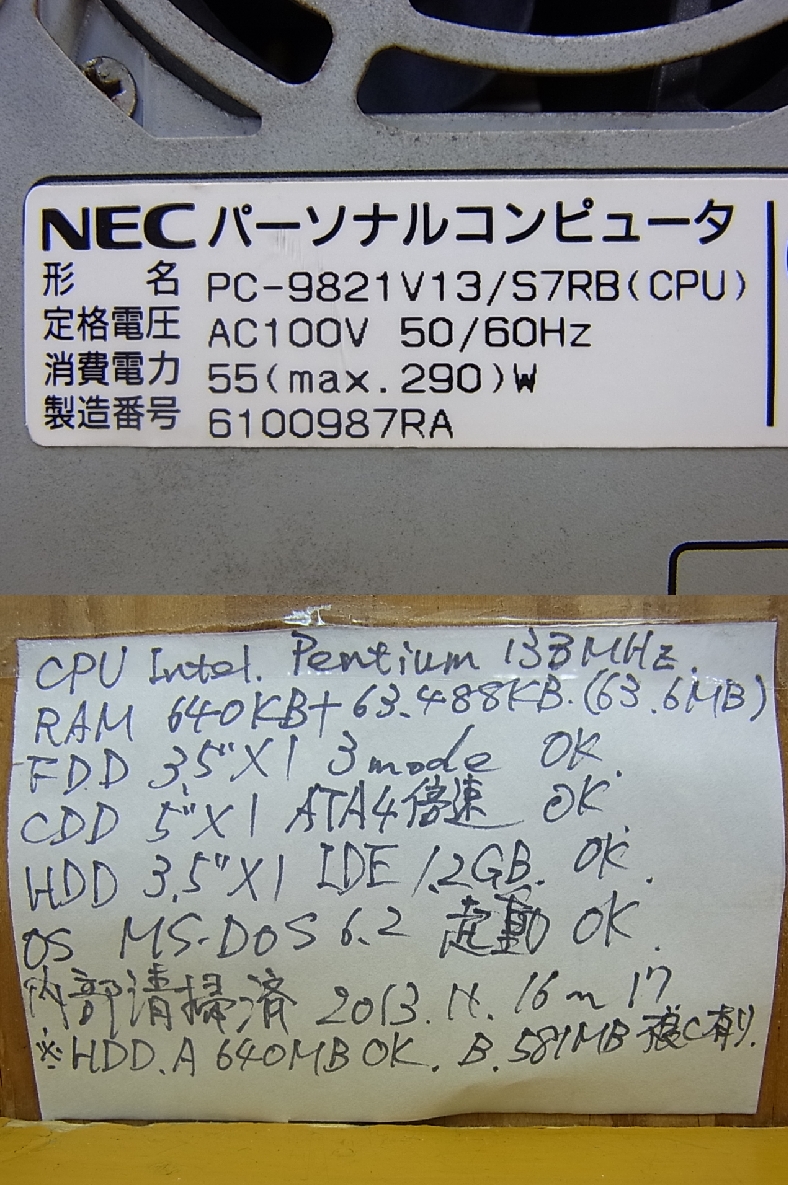 NEC パーソナルコンピュータ
形 名 PC-9821V13/S7RB(CPU)
定格電圧 AC100V 50/60Hz
消費電力 55(max.290)W
製造番号 6100987RA
CPU Intel. Pentium 133MHz.
RAM 640KB+63.488KB.(63.6MB)
FDD 3.5"X1 3mode OK.
CDD 5"X1 ATA4倍速 OK.
HDD 3.5"X1 IDE 1.2GB. OK.
OS MS-DOS 6.2 起動 OK.
内部清掃済 2013. 16~17
※HDD.A 640MB OK. B.581MB 有り.